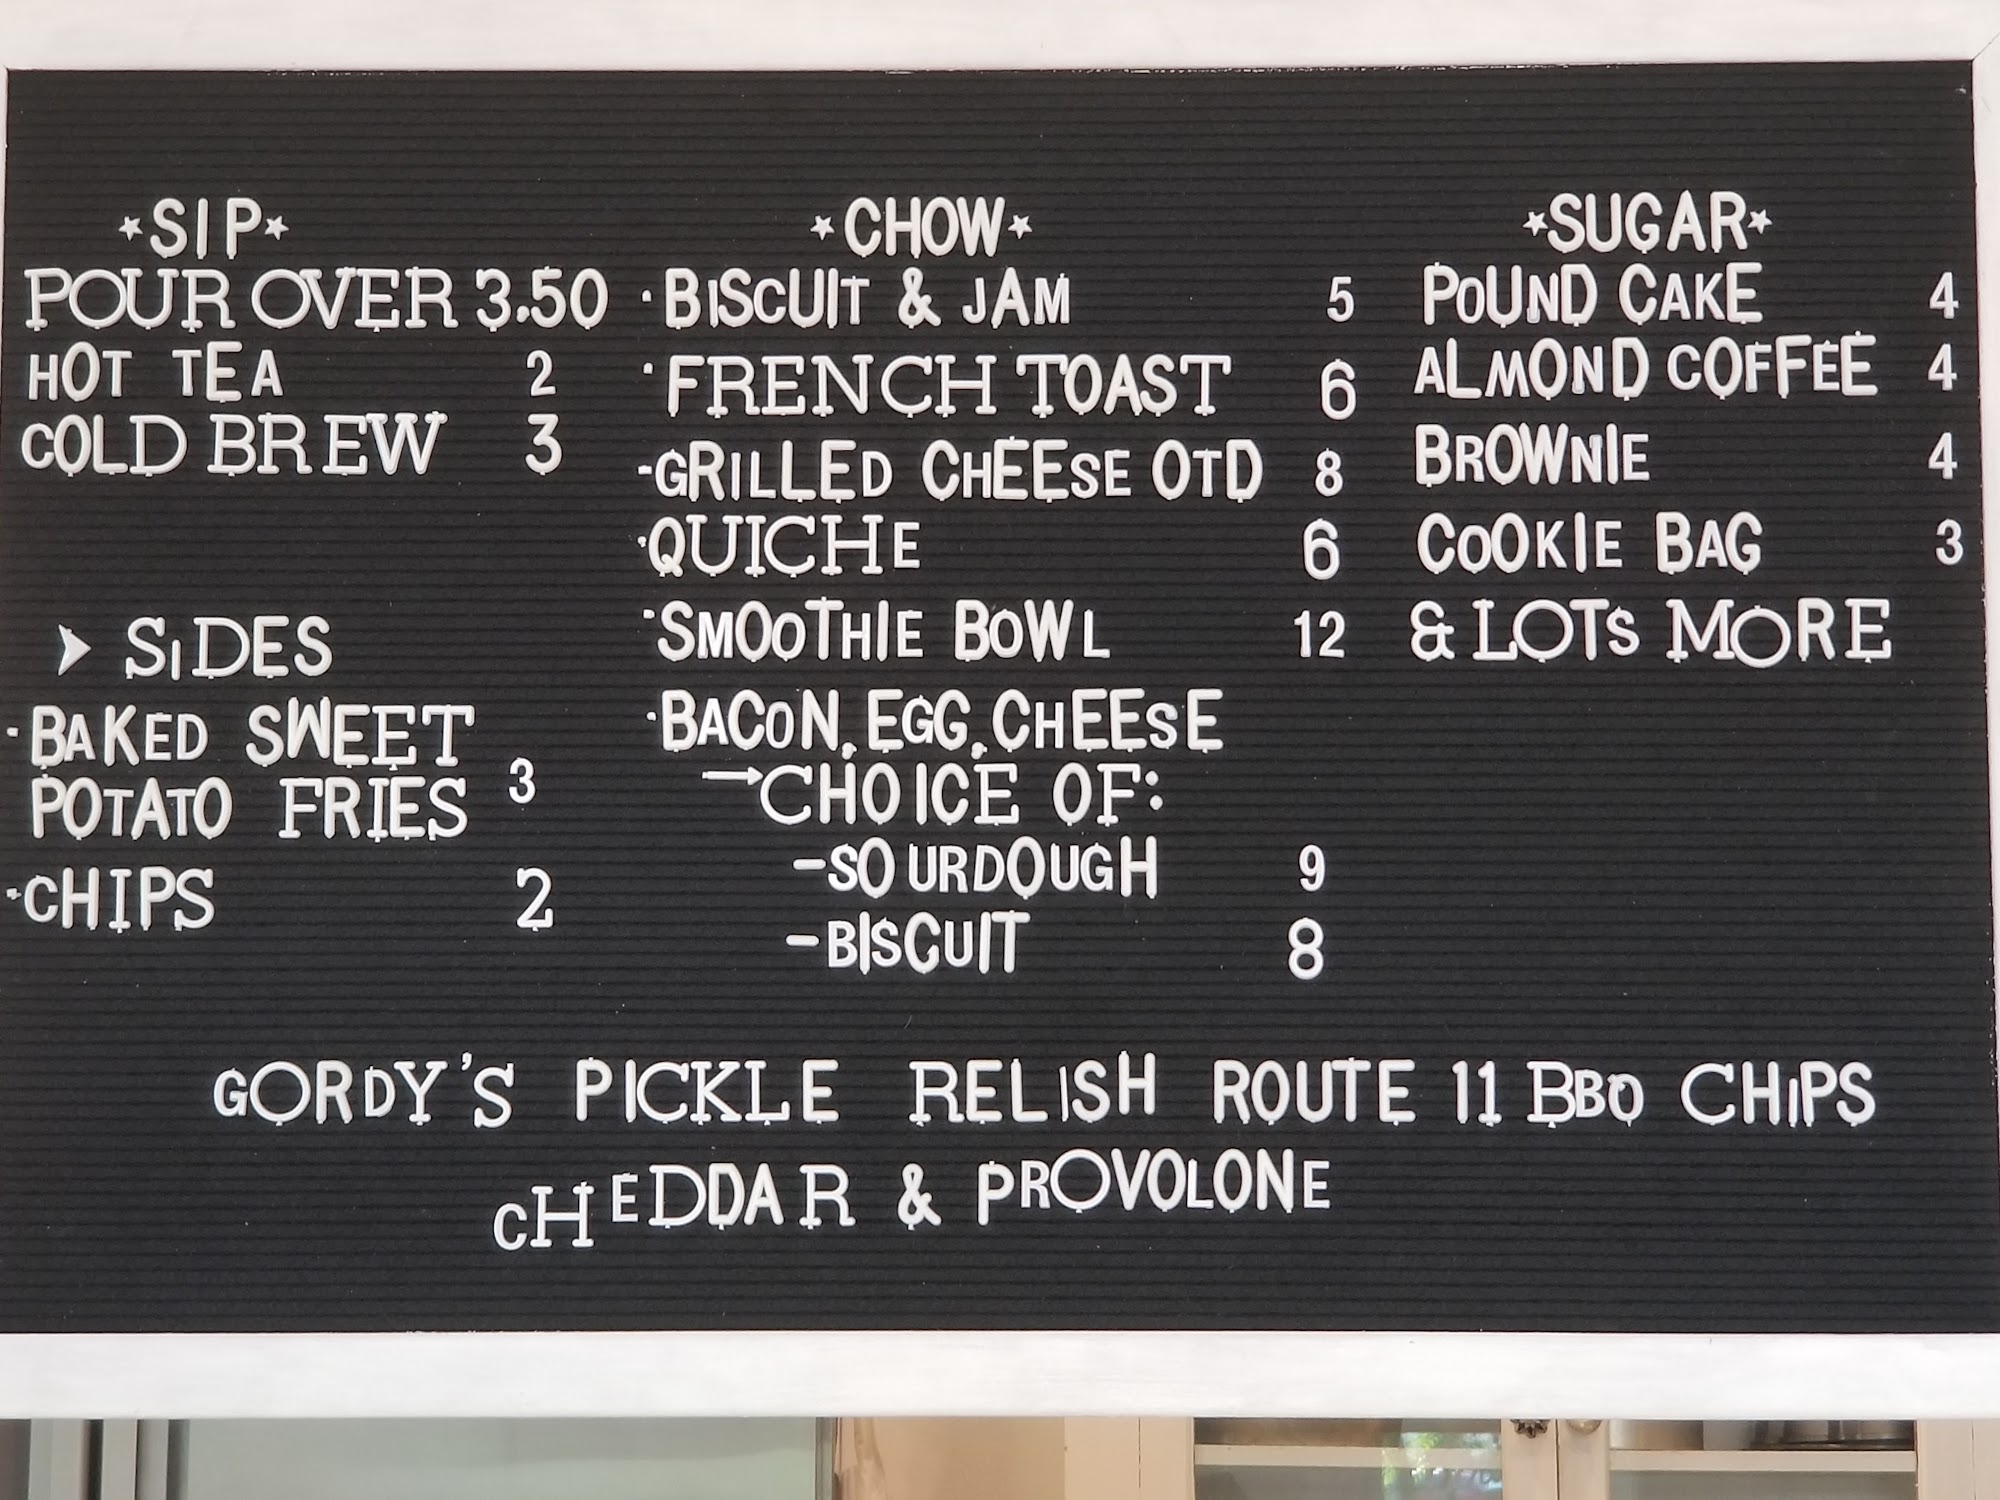 *SIP*
POUR OVER 3.50
HOT TEA 2
COLD BREW 3
SIDES
·BAKED SWEET
POTATO FRIES 3
·CHIPS 2
*CHOW*
·BISCUIT & JAM 5
·FRENCH TOAST 6
·GRILLED CHEESE OTD 8
·QUICHE 6
·SMOOTHIE BOWL 12
·BACON, EGG, CHEESE
→CHOICE OF:
-SOURDOUGH 9
-BISCUIT 8
*SUGAR*
POUND CAKE 4
ALMOND COFFEE 4
BROWNIE 4
COOKIE BAG 3
& LOTS MORE
GORDY'S PICKLE RELISH ROUTE 11 BBQ CHIPS
CHEDDAR & PROVOLONE